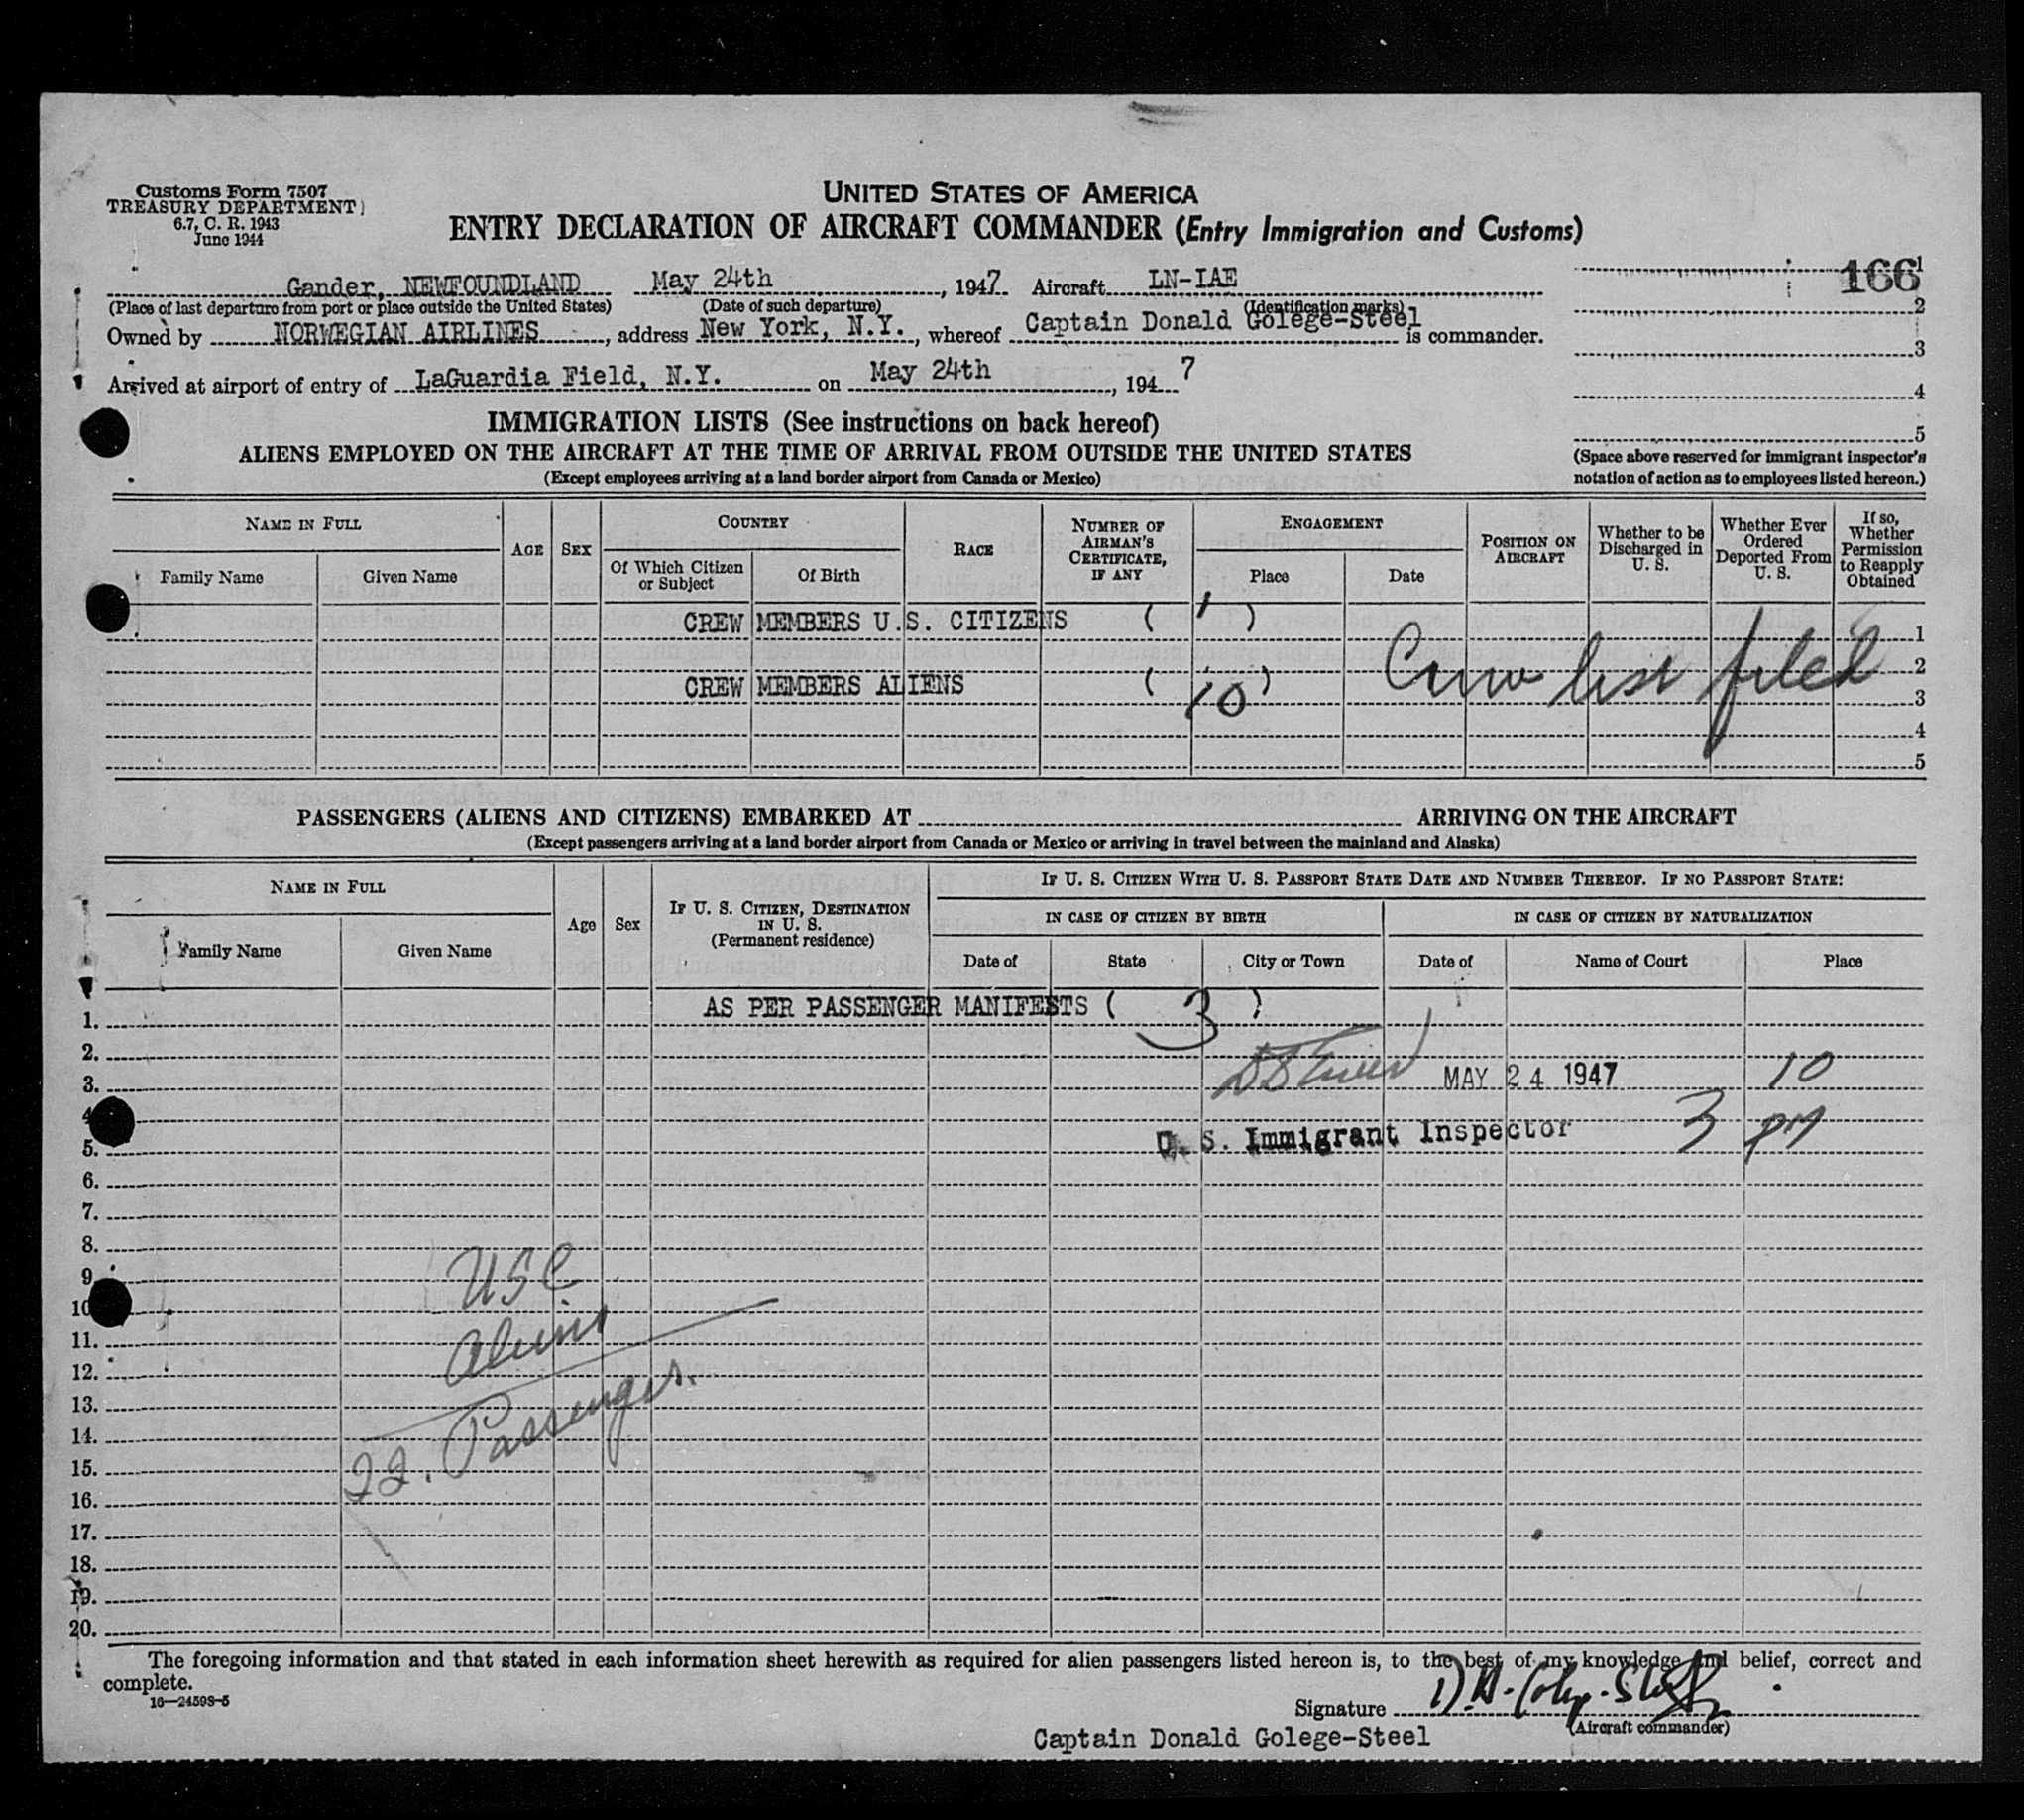 Customs Form 7507
TREASURY DEPARTMENT
6.7, C. R. 1943
June 1944
UNITED STATES OF AMERICA
ENTRY DECLARATION OF AIRCRAFT COMMANDER (Entry Immigration and Customs)
166
Gander, NEWFOUNDLAND May 24th, 1947 Aircraft LN-IAE 1
(Place of last departure from port or place outside the United States) (Date of such departure) (Identification marks) 2
Owned by NORWEGIAN AIRLINES, address New York, N.Y., whereof Captain Donald Golege-Steel is commander.
3
Arrived at airport of entry of LaGuardia Field, N.Y. on May 24th, 1947
4
IMMIGRATION LISTS (See instructions on back hereof)
5
ALIENS EMPLOYED ON THE AIRCRAFT AT THE TIME OF ARRIVAL FROM OUTSIDE THE UNITED STATES
(Except employees arriving at a land border airport from Canada or Mexico)
(Space above reserved for immigrant inspector's
notation of action as to employees listed hereon.)
NAME IN FULL
Family Name
Given Name
AGE
SEX
COUNTRY
Of Which Citizen
or Subject
Of Birth
RACE
NUMBER OF
AIRMAN'S
CERTIFICATE,
IF ANY
ENGAGEMENT
Place
Date
POSITION ON
AIRCRAFT
Whether to be
Discharged in
U. S.
Whether Ever
Ordered
Deported From
U. S.
If so,
Whether
Permission
to Reapply
Obtained
CREW MEMBERS U.S. CITIZENS ( 1 ) 1
Crew list filed 2
CREW MEMBERS ALIENS ( 10 ) 3
4
5
PASSENGERS (ALIENS AND CITIZENS) EMBARKED AT ARRIVING ON THE AIRCRAFT
(Except passengers arriving at a land border airport from Canada or Mexico or arriving in travel between the mainland and Alaska)
NAME IN FULL
Family Name
Given Name
Age
Sex
IF U. S. CITIZEN, DESTINATION
IN U. S.
(Permanent residence)
IF U. S. CITIZEN WITH U. S. PASSPORT STATE DATE AND NUMBER THEREOF. IF NO PASSPORT STATE:
IN CASE OF CITIZEN BY BIRTH
IN CASE OF CITIZEN BY NATURALIZATION
Date of
State
City or Town
Date of
Name of Court
Place
AS PER PASSENGER MANIFESTS ( 3 )
1.
2.
3. MAY 24 1947 10
4.
5. U. S. Immigrant Inspector 3 PM
6.
7.
8.
9. USC
10.
11. Aliens
12.
13.
14.
15. 22. Passengers.
16.
17.
18.
19.
20.
The foregoing information and that stated in each information sheet herewith as required for alien passengers listed hereon is, to the best of my knowledge and belief, correct and
complete.
16—24598-5
Signature
(Aircraft commander)
Captain Donald Golege-Steel